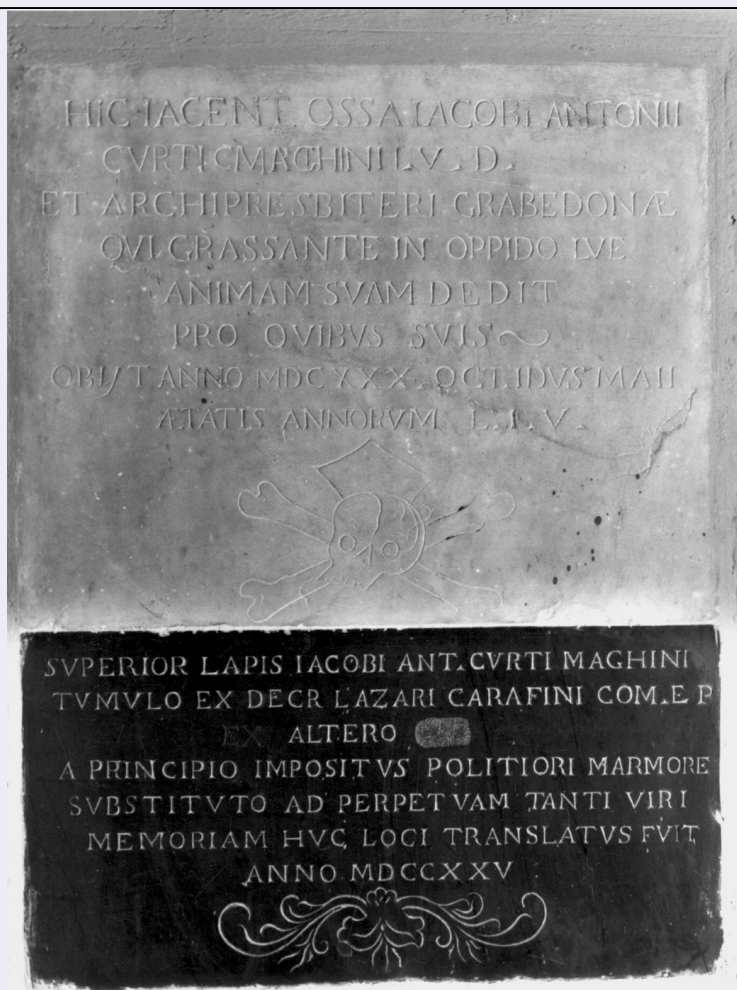 HIC·IACENT OSSA·IACOBI ANTONII
CVRTI
ET ARCHIPRESBITERI GRABEDONÆ
QVI GRASSANTE IN OPPIDO LVE
ANIMAM SVAM DEDIT
PRO OVIBVS SVIS
OBIJT ANNO MDCXXX OCT. IDVS MAII
ÆTATIS ANNORVM L.I.V.
SVPERIOR LAPIS IACOBI ANT. CVRTI MAGHINI
TVMVLO EX DECR LAZARI CARAFINI COM. E P
EX ALTERO
A PRINCIPIO IMPOSITVS POLITIORI MARMORE
SVBSTITVTO AD PERPETVAM TANTI VIRI
MEMORIAM HVC LOCI TRANSLATVS FVIT
ANNO MDCCXXV